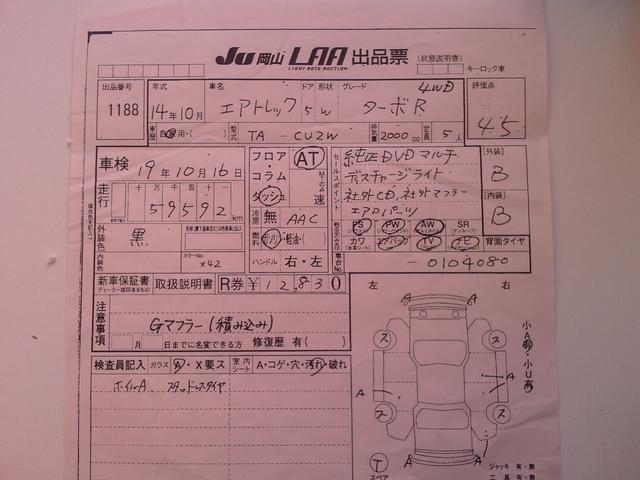 JU岡山 LAA 出品票 (状態説明書)
LIGHT AUTO AUCTION
キーロック車
出品番号 年式 車名 ドア 形状 グレード 4WD 評価点
1188 14年10月 エアトレック 5 W ターボR 4.5
車歴 自家用・( ) 型式 TA - CU2W 排気量 2000 cc 定員 5人
車検 19年10月16日 フロア・コラム・ダッシュ AT 速
セールスポイント 純正DVDマルチ
ディスチャージライト
社外CD, 社外マフラー
エアロパーツ
[外装] B
[内装] B
走行 十 万 千 百 十 一
59592 km
冷房 無 AAC
燃料 ガソリン・軽油・( )
ハンドル 右・左
外装色 黒
カラーNo. X42
内装色
PS PW AW SR
カワ エアバッグ TV ナビ 背面タイヤ
車台No. - 0104080
新車保証書 取扱説明書 R券 ¥12,830
ディーラー捺印あるもの
注意事項 Gマフラー(積み込み)
月 日までに名変できる方 修復歴 有( )
検査員記入 ガラス A・X要ス 室内シート A・コゲ・穴・汚れ・破れ
ホイールA スタッドレスタイヤ
左 右
A A
ス ス
A A
ス ス
A A
T
スペア
ジャッキ 有・無
工具 有・無